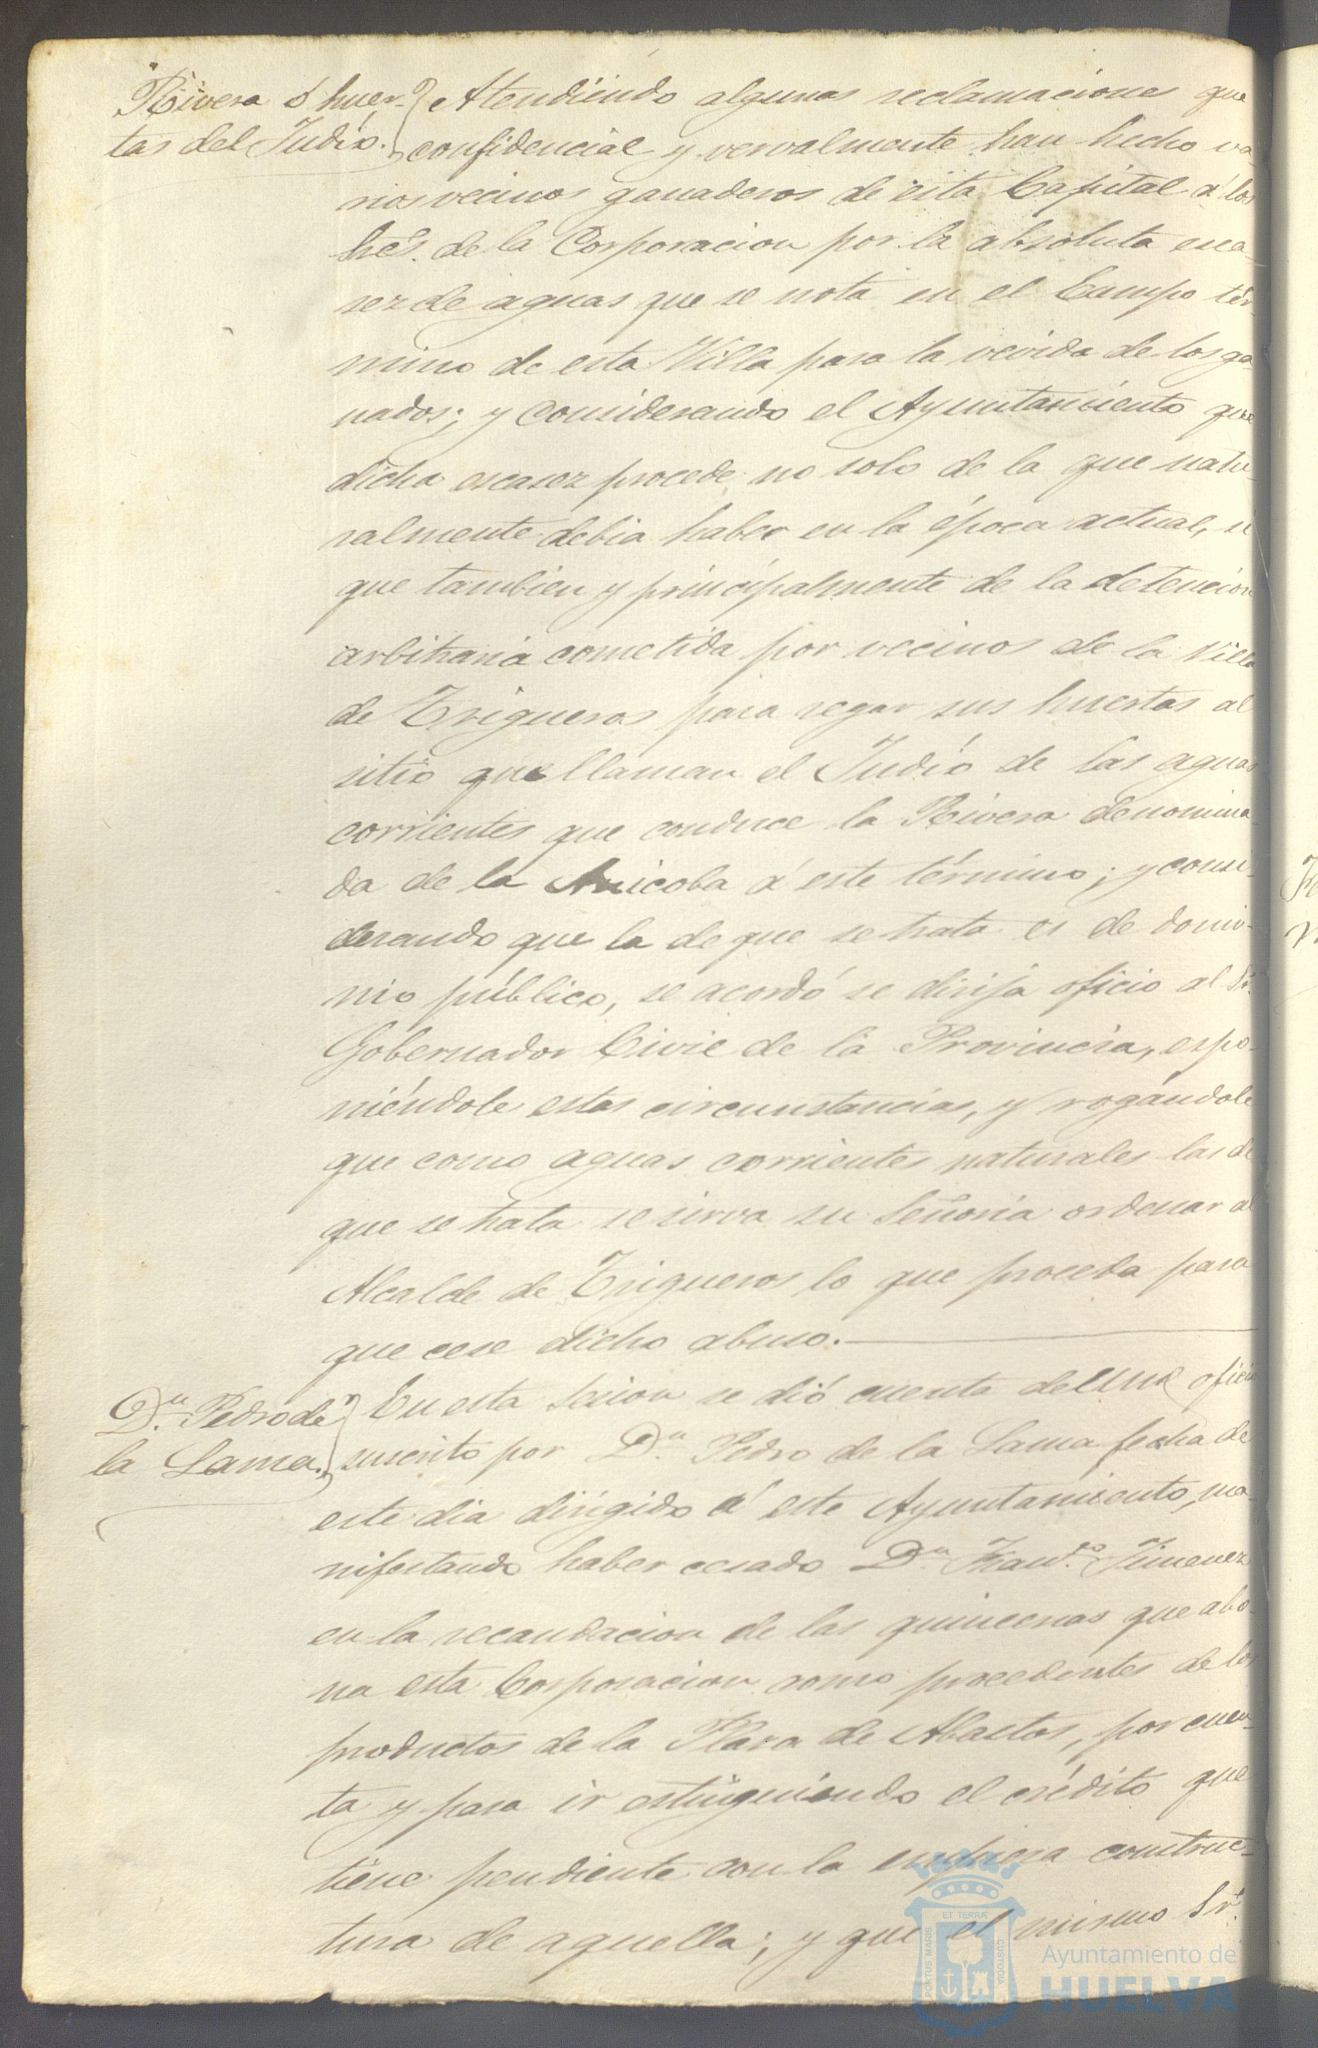 Rivera ó huer-
tas del Judío.
Atendiendo algunas reclamaciones que
confidencial y vervalmente han hecho va-
rios vecinos ganaderos de esta Capital á los
hres. de la Corporacion por la absoluta esca-
sez de aguas que se nota en el Campo tér-
mino de esta Villa para la vevida de los ga-
nados; y considerando el Ayuntamiento que
dicha escasez procede no solo de la que natu-
ralmente debia haber en la época actual, si
que tambien y principalmente de la detencion
arbitraria cometida por vecinos de la Villa
de Trigueros para regar sus huertas al
sitio que llaman el Judío de las aguas
corrientes que conduce la Rivera denomina-
da de la Anicoba á este término; y consi-
derando que la de que se trata es de domi-
nio público, se acordó se dirija oficio al Sr.
Gobernador Civil de la Provincia, espo-
niéndole estas circunstancias, y rogándole
que como aguas corrientes naturales las de
que se trata se sirva su Señoria ordenar al
Alcalde de Trigueros lo que proceda para
que cese dicho abuso.
Dn. Pedro de
la Lama.
En esta sesion se dió cuenta de un oficio
suscrito por Dn. Pedro de la Lama fecha de
este dia dirigido á este Ayuntamiento, ma-
nifestando haber cesado Dn. Franco. Jimenez
en la recaudacion de las quincenas que abo-
na esta Corporacion como procedentes de los
productos de la Plaza de Abastos, por cuen-
ta y para ir estinguiendo el crédito que
tiene pendiente con la empresa construc-
tura de aquella; y que el mismo Sr.
PORTUS MARIS
ET TERRÆ
CUSTODIA
Ayuntamiento de
HUELVA